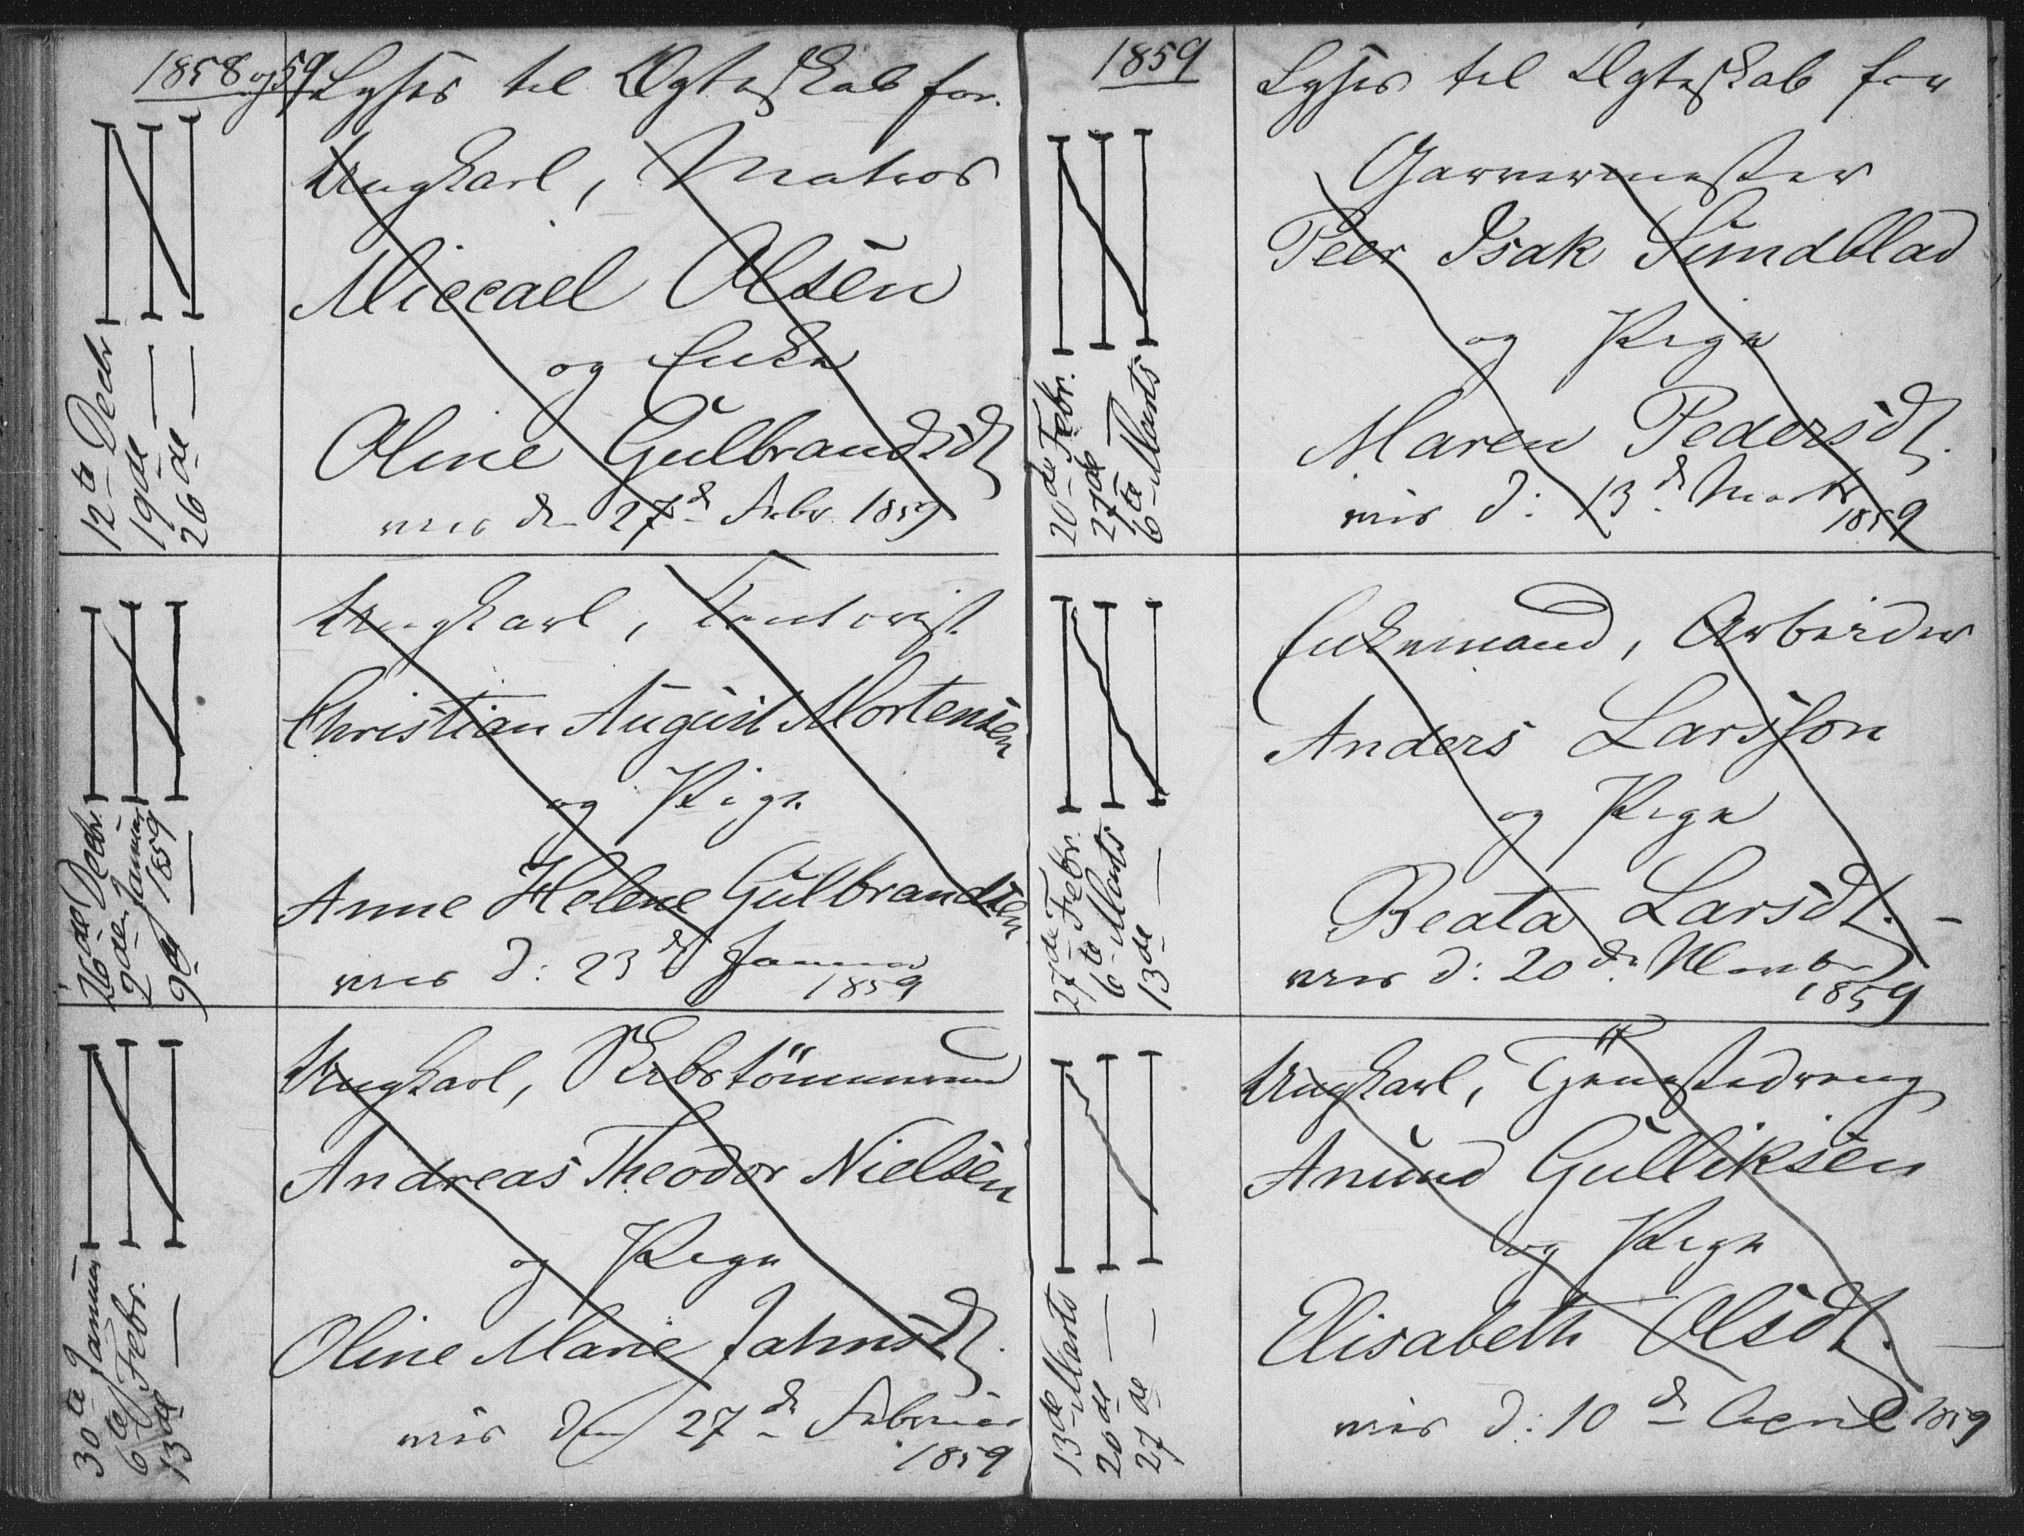 1858 og 59
Lyses til Ægteskab for.
12te Decbr
19de —
26de —
Ungkarl, Matros
Miccael Olsen
og Enke
Oline Gulbrandsd.
vies den 27de Febr. 1859
26de Decbr.
2den Januar
9de — 1859
Ungkarl, Contorist
Christian August Mortensen
og Pige
Anne Helene Gulbrandsen
vies d: 23de Januar
1859
30te Januar
6te Febr.
13de —
Ungkarl, Skibstømmermand
Andreas Theodor Nielsen
og Pige
Oline Marie Jahnsd.
vies den 27de Februar
1859
1859
Lyses til Ægteskab for
20de Febr.
27de
6te Marts
Garvermester
Peer Isak Sundblad
og Pige
Maren Pedersd.
vies d: 13de Marts
1859
27de Febr.
6te Marts
13de —
Enkemand, Arbeider
Anders Larsson
og Pige
Beata Larsd. —
vies d: 20de
1859
13de Marts
20de —
27de —
Ungkarl, Tjenestedreng
Anund Gulliksen
og Pige
Elisabeth Olsd.
vies d: 10de April 1859